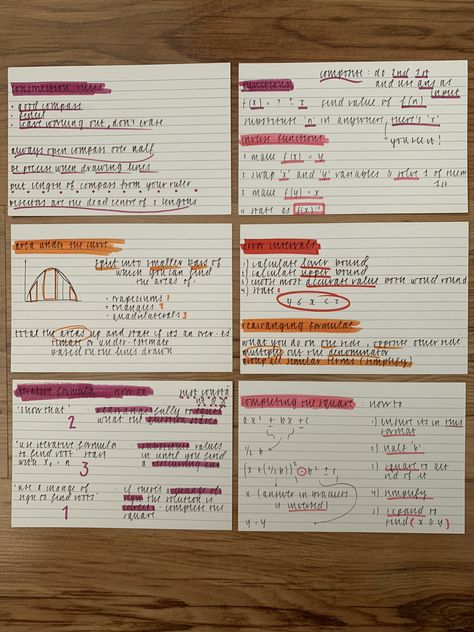 construction rules
• good compass
• pencil
• leave working out, don't erase
always open compass over half
be precise when drawing lines
put length of compass from your ruler
bisectors are the dead centre of 2 lengths
functions
composite : do 2nd 1st
and use ans as
input
f(x) = ? ± x find value of f(n)
substitute 'n' in anywhere there's 'x'
you see it!
inverse functions
1 make f(x) = y
2 swap 'x' and 'y' variables & solve 1 of them
1st
3 make f(y) = x
4 state as f(x)⁻¹
area under the curve
split into smaller bars of
which you can find
the areas of:
• trapeziums 1
• triangles 2
• quadrilaterals 3
total the areas up and state if its an over-es
timate or under-estimate
based on the lines drawn
error intervals
1) calculate lower bound
2) calculate upper bound
3) most accurate value both would round
4) state:
y ≤ x < z
rearranging formulae
what you do on one side, opposite other side
multiply out the denominator
group all similar terms (simplify)
iterative formula : how to
'show that'
rearrange fully to equal
what our question states
2
'use iterative formula
to find root' start
with x, = n 3
substitute values
in until you find
a
'use a change of
sign to find roots'
1
if theres a change of
sign the solution is
correct - complete the
square
completing the square : how to
ax² + bx + c
½ b
(x + (½b))² - b² ± c
x (answer in brackets
is inversed)
y = y
1) ensure its in this
format
2) half 'b'
3) square to get
rid of it
4) simplify
5) expand to
find (x & y)